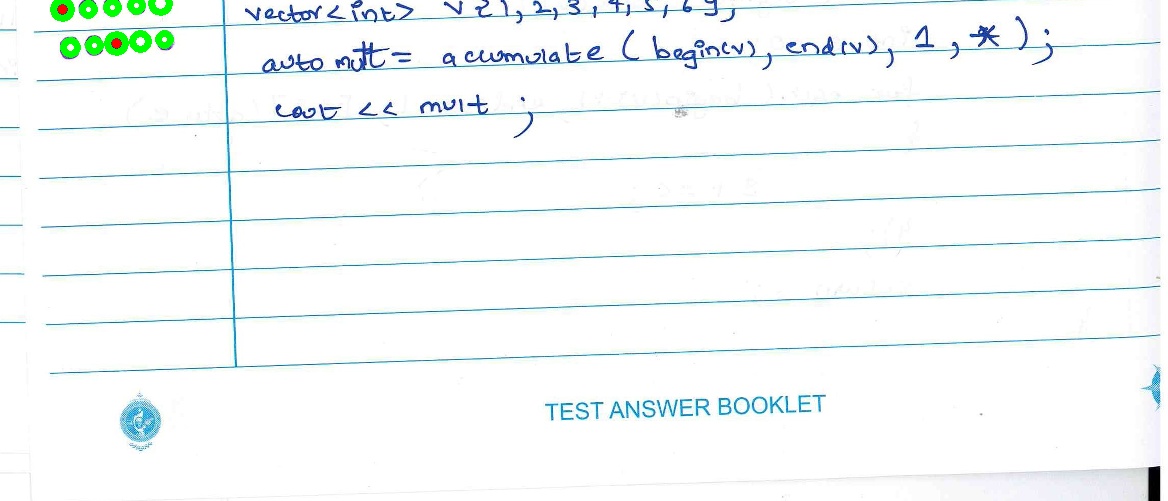 vector<int> v {1, 2, 3, 4, 5, 6};
auto mult = accumulate (begin(v), end(v), 1, *);
cout << mult ;
TEST ANSWER BOOKLET